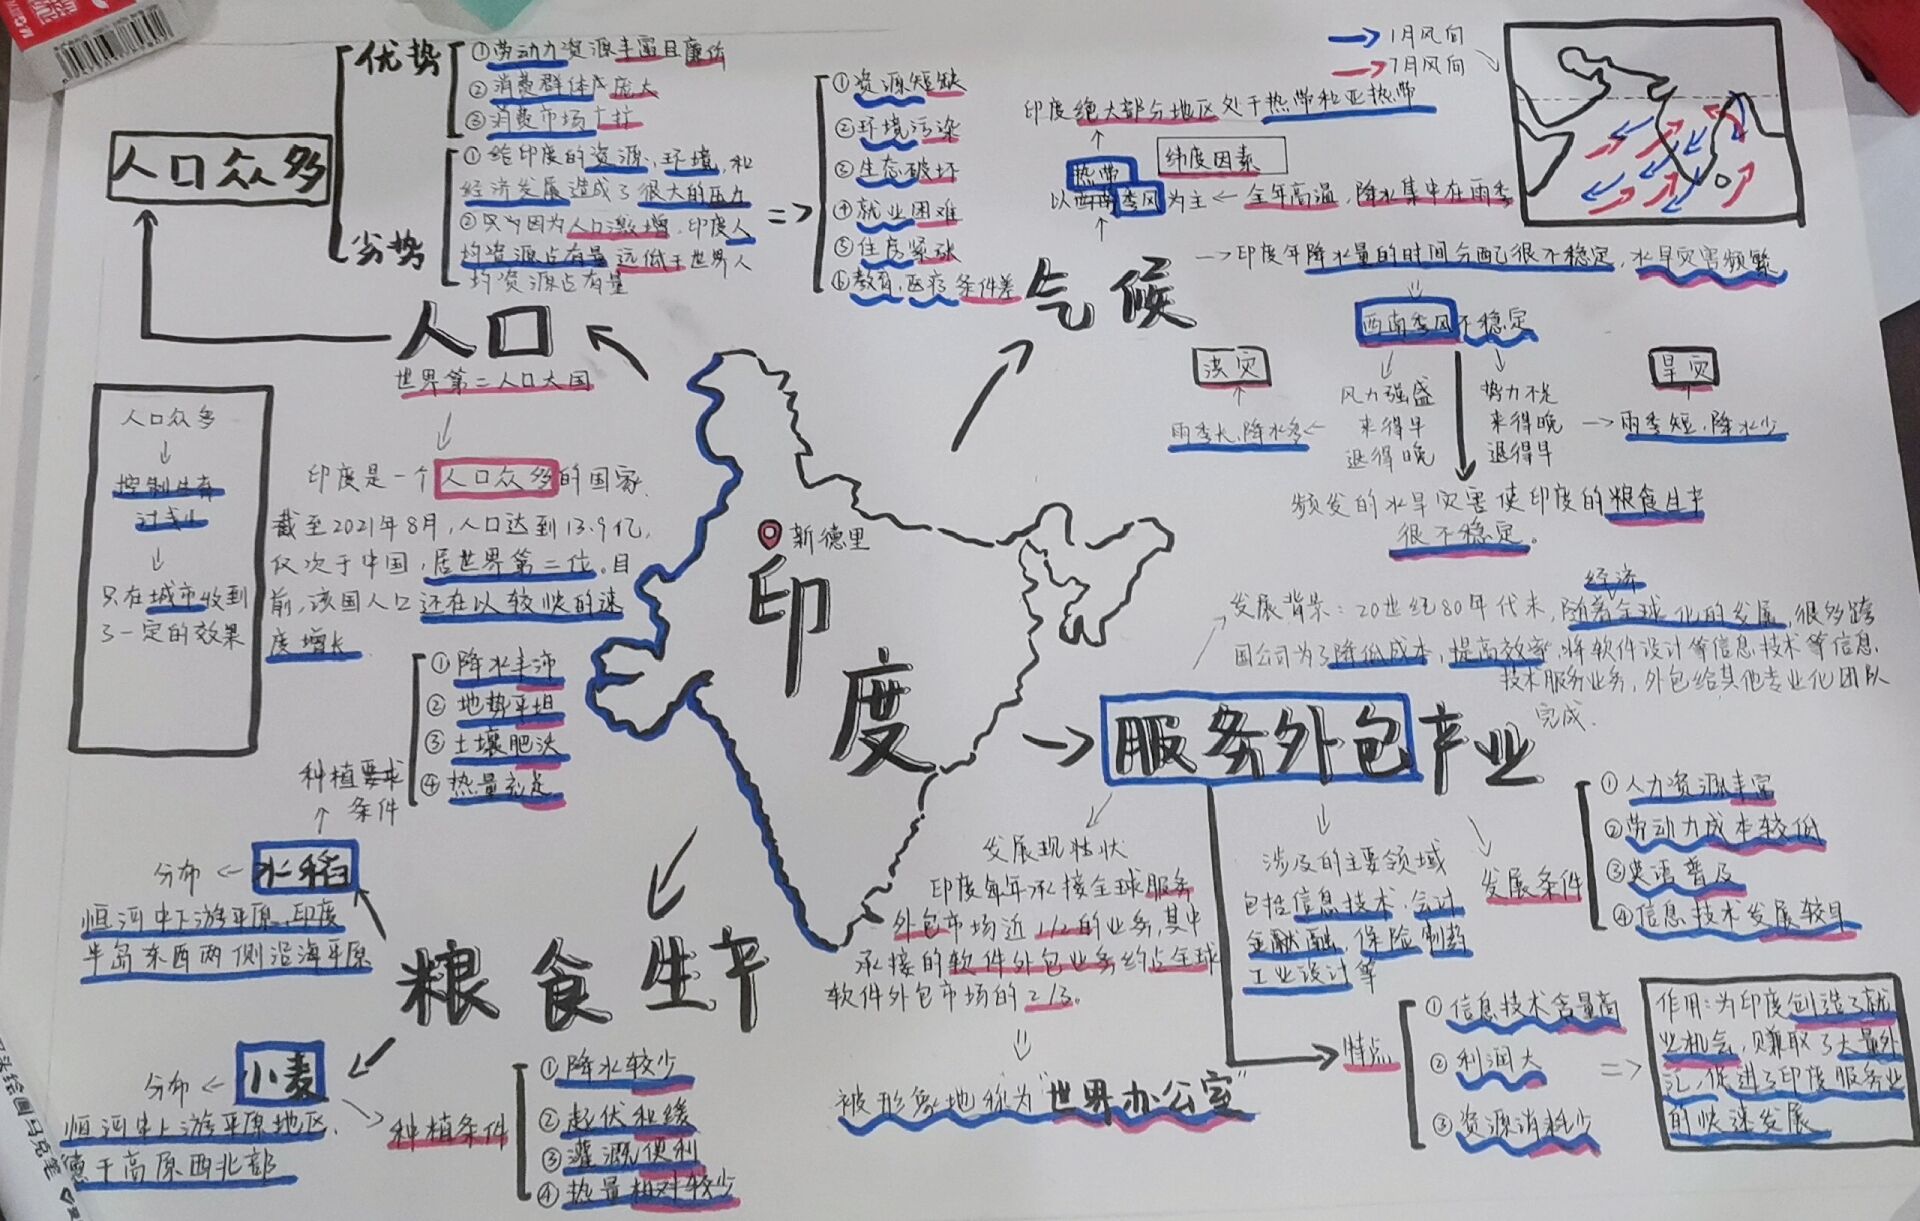 优势
①劳动力资源丰富且廉价
②消费群体成庞大
③消费市场广扩
人口众多
劣势
①给印度的资源、环境、和
经济发展造成了很大的压力
②只少因为人口激增,印度人
均资源占有量远低于世界人
均资源占有量
①资源短缺
②环境污染
③生态破坏
④就业困难
⑤住房紧张
⑥教育、医疗条件差
人口
世界第二人口大国
印度是一个人口众多的国家、
截至2021年8月,人口达到13.9亿,
仅次于中国,居世界第二位。目
前,该国人口还在以较快的速
度增长
人口众多
控制生育
只在城市收到
了一定的效果
气候
1月风向
7月风向
印度绝大部分地区处于热带和亚热带
纬度因素
热带
以西南季风为主
全年高温,降水集中在雨季
印度年降水量的时间分配很不稳定,水旱灾害频繁
西南季风不稳定
涝灾
雨季长、降水多
风力强盛
来得早
退得晚
势力不足
来得晚
退得早
旱灾
雨季短、降水少
频发的水旱灾害使印度的粮食生产
很不稳定。
新德里
印度
服务外包产业
发展背景:20世纪80年代末,随着全球化的发展,很多跨
经济
国公司为了降低成本,提高效率,将软件设计等信息技术等信息
技术服务业务,外包给其他专业化团队
完成.
发展现状
印度每年承接全球服务
外包市场近1/2的业务,其中
承接的软件外包业务约占全球
软件外包市场的2/3。
被形象地称为"世界办公室"
涉及的主要领域
包括信息技术,会计
金融,保险制药
工业设计等
发展条件
①人力资源丰富
②劳动力成本较低
③英语普及
④信息技术发展较早
特点
①信息技术含量高
②利润大
③资源消耗少
作用:为印度创造了就
业机会,赚取了大量外
汇,促进了印度服务业
的快速发展
粮食生产
水稻
种植要求
条件
①降水丰沛
②地势平坦
③土壤肥沃
④热量充足
分布
恒河中下游平原,印度
半岛东西两侧沿海平原
小麦
分布
恒河中上游平原地区、
德干高原西北部
种植条件
①降水较少
②起伏和缓
③灌溉便利
④热量相对较少